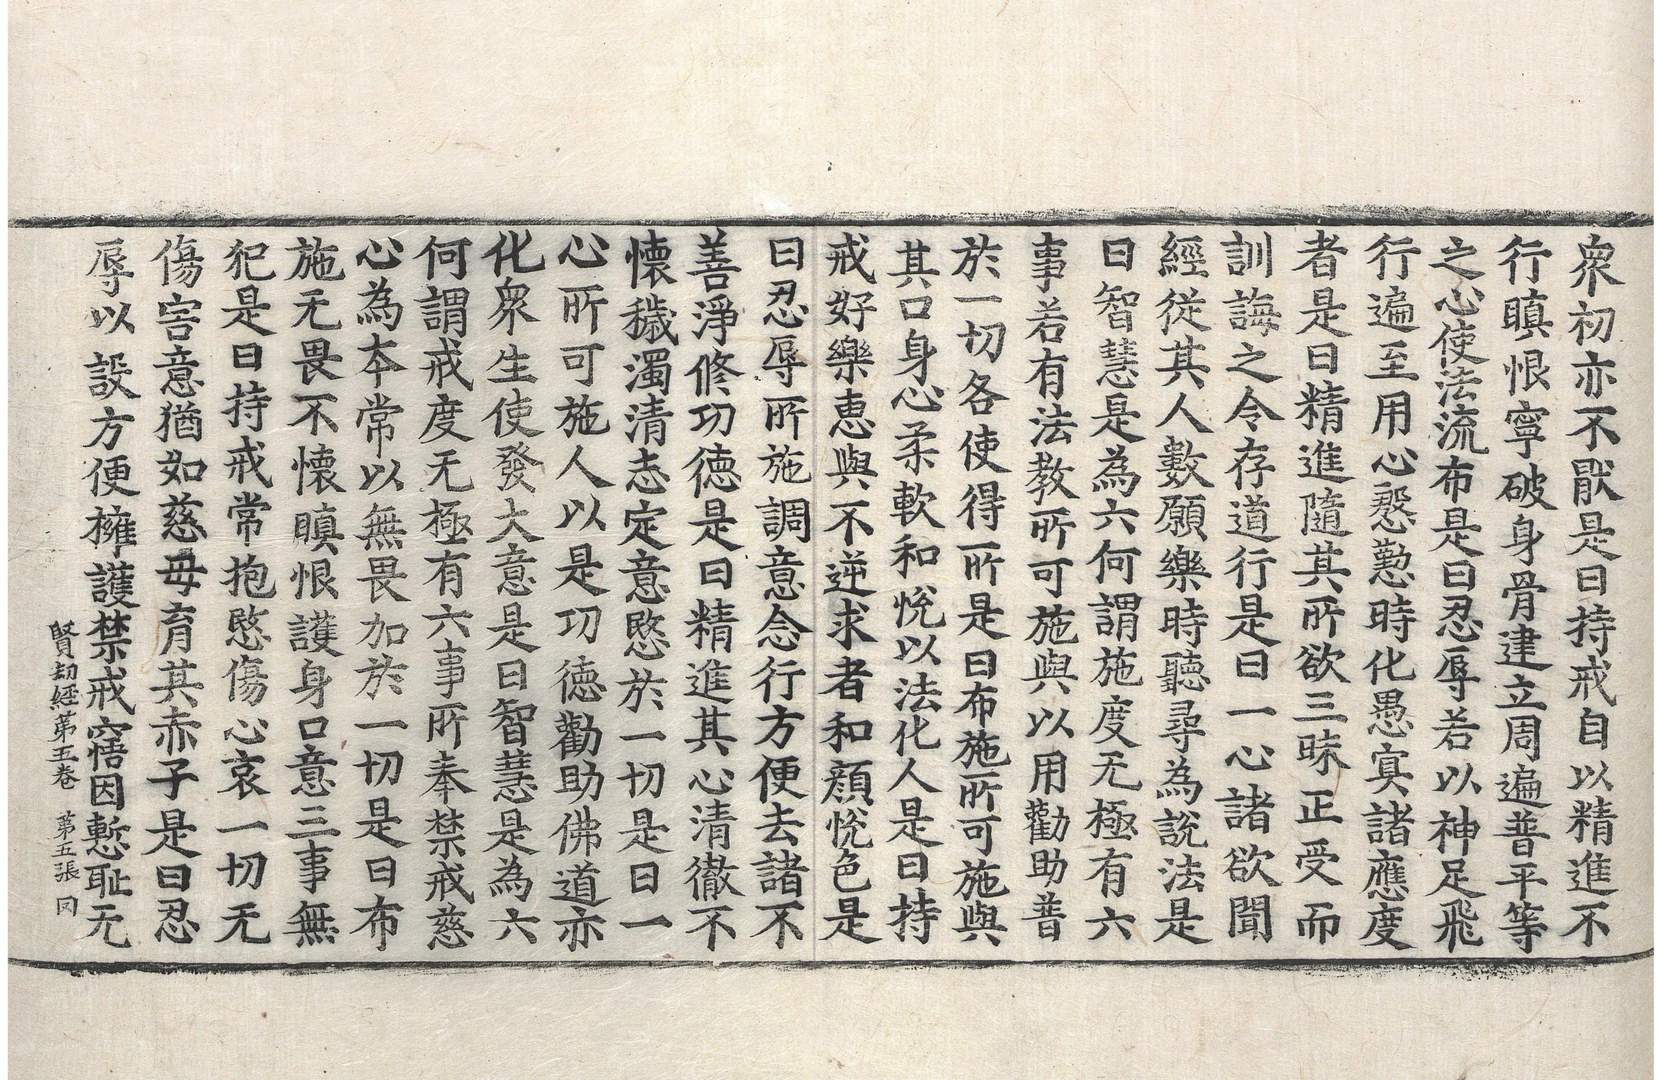 衆初亦不猒是曰持戒自以精進不
行瞋恨寧破身骨建立周遍普平等
之心使法流布是曰忍辱若以神足飛
行遍至用心慇懃時化愚㝠諸應度
者是曰精進隨其所欲三昧正受而
訓誨之令存道行是曰一心諸欲聞
經從其人數願樂時聽尋為說法是
曰智慧是為六何謂施度无極有六
事若有法教所可施與以用勸助普
於一切各使得所是曰布施所可施與
其口身心柔軟和悅以法化人是曰持
戒好樂惠與不逆求者和顔悅色是
曰忍辱所施調意念行方便去諸不
善淨修功德是曰精進其心清徹不
懷穢濁清志定意愍於一切是曰一
心所可施人以是功德勸助佛道亦
化衆生使發大意是曰智慧是為六
何謂戒度无極有六事所奉禁戒慈
心為本常以無畏加於一切是曰布
施无畏不懷瞋恨護身口意三事無
犯是曰持戒常抱愍傷心哀一切无
傷害意猶如慈母育其赤子是曰忍
辱以設方便擁護禁戒寤因慙恥无
賢劫經第五卷 第五張 冈